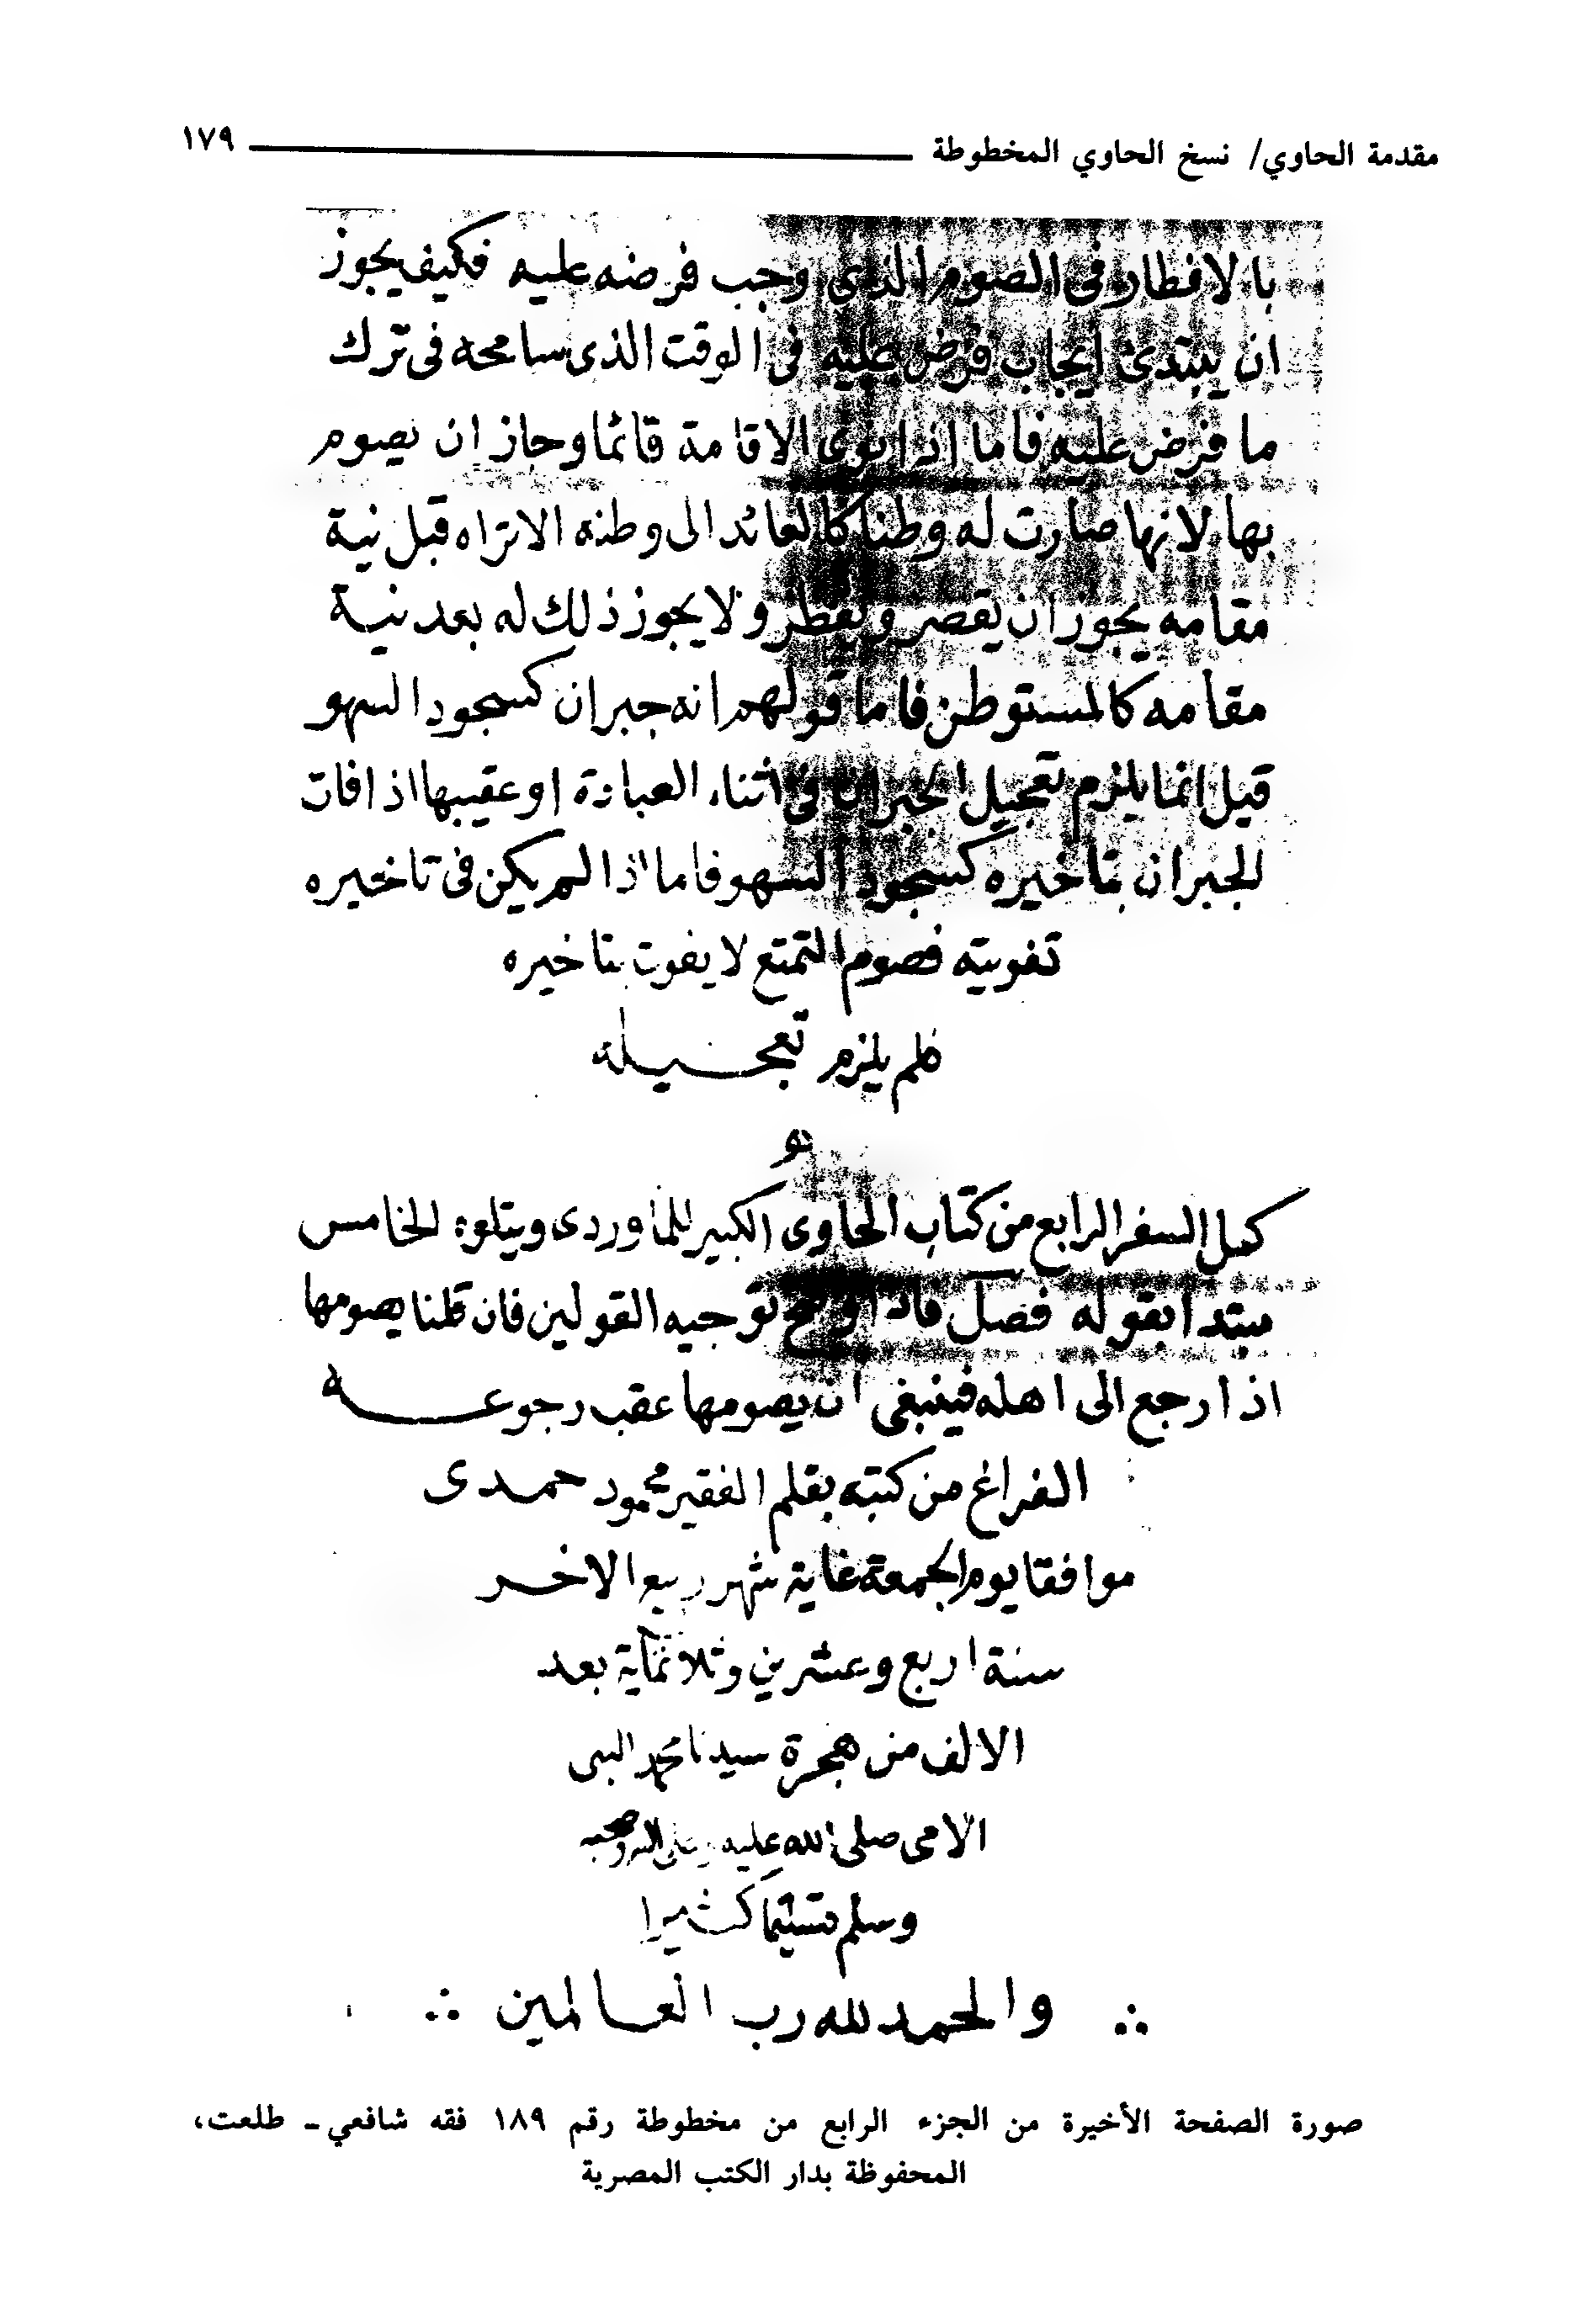 مقدمة الحاوي/ نسخ الحاوي المخطوطة ١٧٩
بالافطار فى الصوم الذى وجب فرضه عليه فكيف يجوز
ان يبتدئ ايجاب فرض عليه فى الوقت الذى سامحه فى ترك
ما فرض عليه فاما اذا نوى الاقامة قائما وجاز ان يصوم
بها لانها صارت له وطنا كالعائد الى وطنه الا تراه قبل نية
مقامه يجوز ان يقصر ويفطر ولا يجوز ذلك له بعد نية
مقامه كالمستوطن فاما قولهم انه جبران كسجود السهو
قيل انما يلزم تعجيل الجبران فى اثناء العبادة او عقيبها اذا فات
الجبران بتاخيره كسجود السهو فاما اذا لم يكن فى تاخيره
تفويته فصوم التمتع لا يفوت بتاخيره
فلم يلزم تعجيله
كمل السفر الرابع من كتاب الحاوى الكبير للماوردى ويتلوه الخامس
مبتدا بقوله فصل فاذا وضح توجيه القولين فان قلنا يصومها
اذا رجع الى اهله فينبغى ان يصومها عقب رجوعه
الفراغ من كتبه بقلم الفقير محمود حمدى
موافقا يوم الجمعة غاية شهر ربيع الاخر
سنة اربع وعشرين وثلاثمآية بعد
الالف من هجرة سيدنا محمد النبى
الامى صلى الله عليه وعلى اله وصحبه
وسلم تسليما كثيرا
والحمد لله رب العالمين
صورة الصفحة الأخيرة من الجزء الرابع من مخطوطة رقم ١٨٩ فقه شافعي - طلعت،
المحفوظة بدار الكتب المصرية